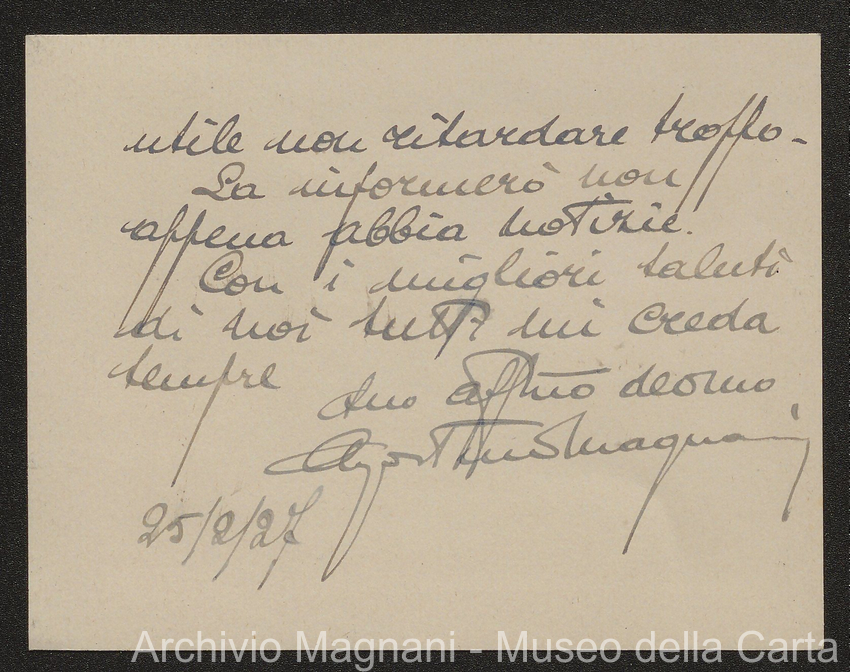 utile non ritardare troppo-
La informerò non
appena abbia notizie.
Con i migliori saluti
di noi tutti mi creda
sempre
Suo affmo devmo
Agostino Magnani
25/2/27
Archivio Magnani - Museo della Carta